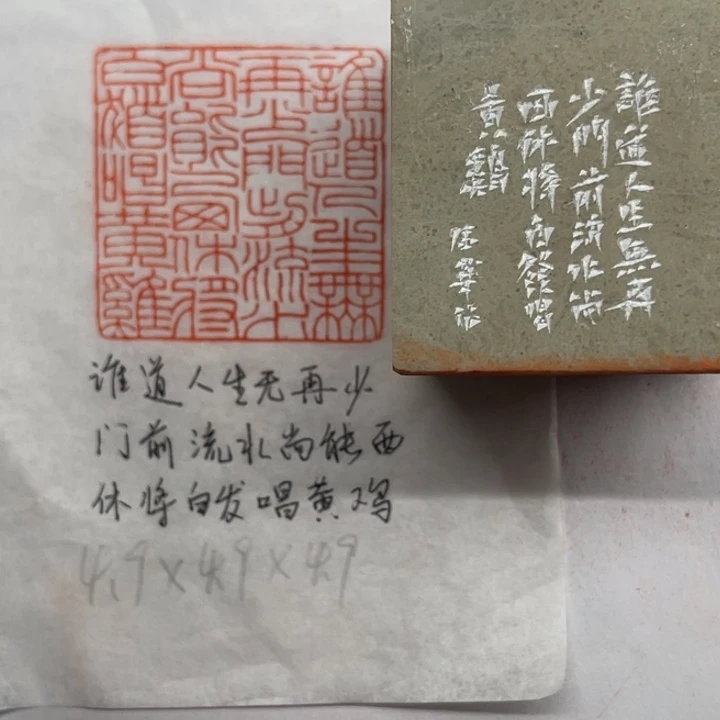 誰道人生無
再少門前流水
尚能西休將
白髮唱黃雞
誰道人生無再
少門前流水尚
西休將白髮唱
黃鷄
谁道人生无再少
门前流水尚能西
休将白发唱黄鸡
4.9×4.9×4.9